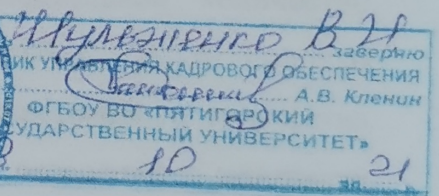 Шульженко В И
заверяю
ИК УПРАВЛЕНИЯ КАДРОВОГО ОБЕСПЕЧЕНИЯ
А.В. Кленин
ФГБОУ ВО «ПЯТИГОРСКИЙ
УДАРСТВЕННЫЙ УНИВЕРСИТЕТ»
10 21